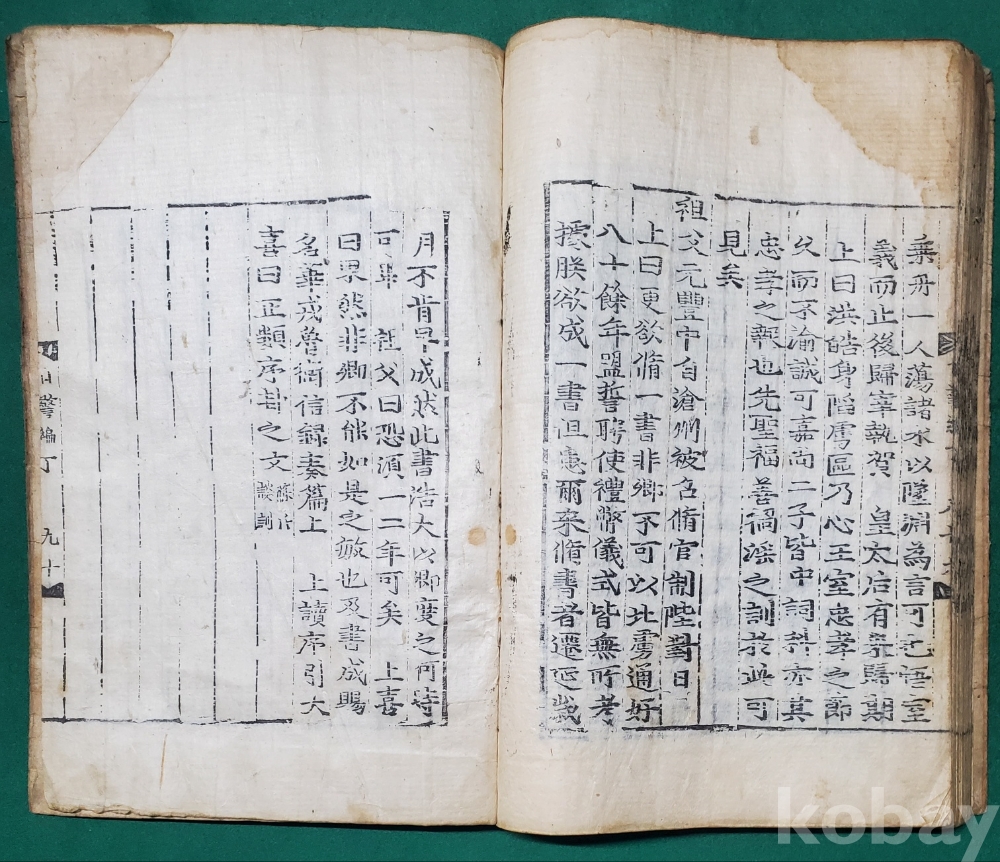 乘舟一人蕩諸水以墜淵為言可也語塞
義而止後歸宰執賀 皇太后有歸期
上曰洪皓身陷虜區乃心王室忠孝之節
久而不渝誠可嘉尚二子皆中詞科亦其
忠孝之報也先聖福善禍淫之訓於此可
見矣
祖父元豐中自滄州被召脩官制陛對日
上曰更欲脩一書非卿不可以北虜通好
八十餘年盟誓聘使禮幣儀式皆無所考
據朕欲成一書但患爾來脩書者遷延歲
月不肯早成然此書浩大以卿度之何時
可畢 祖父曰恐須一二年可矣 上喜
曰果然非卿不能如是之敏也及書成賜
名華戎魯衛信錄奏篇上 上讀序引大
喜曰正類序卦之文
談訓
警編丁
九十
kobay